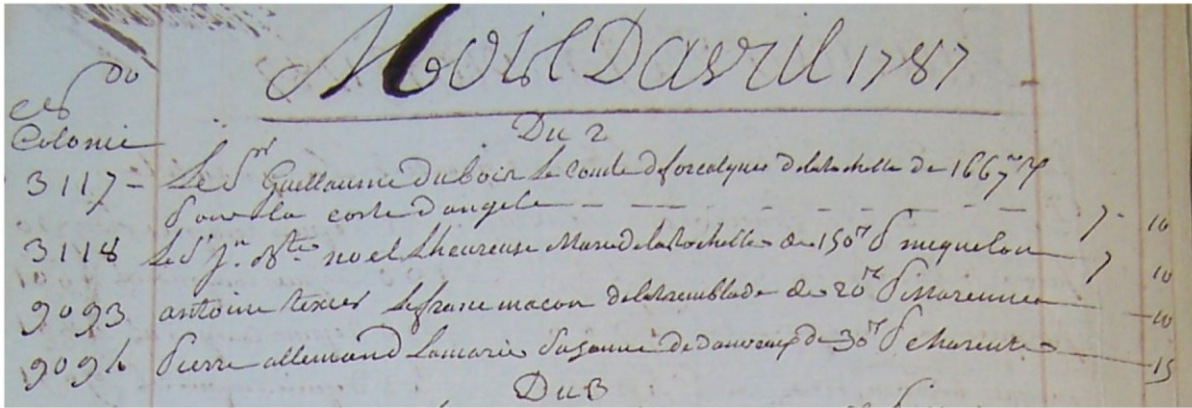 Mois Davril 1787
Colonie
Du 2
3117 - Le Sr Guillaume Dubois Le Comte de forcalques de la Rochelle de 166
Pour la coste d'angole 7 - 10
3118 Le Sr jn Bte noel Lheureuse Marie de la Rochelle de 150 Tx P miquelon 7 10
9093 antoine texier Le franc macon de la tremblade de 20 Tx P Marennes 10
9094 Pierre allemand La marie de 30 Tx P charente 15
Du 3